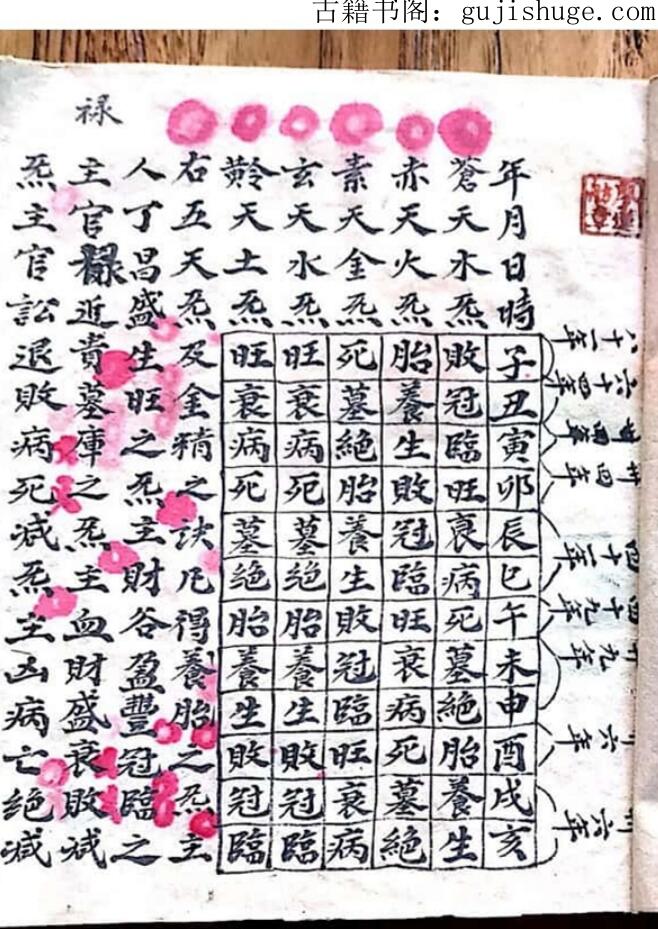 古籍书阁：gujishuge.com
八十一年
六十四年
四十一年
四十九年
年月日時子丑寅卯辰巳午未申酉戌亥
蒼天水炁敗冠臨旺衰病死墓絶胎養生
赤天火炁胎養生敗冠臨旺衰病死墓絶
素天金炁死墓絶胎養生敗冠臨旺衰病
玄天水炁旺衰病死墓絶胎養生敗冠臨
黅天土炁旺衰病死墓絶胎養生敗冠臨
右五天炁及金精之訣凡得養胎之炁主
人丁昌盛生旺之炁主財谷盈豐冠臨之
禄
主官祿近貴墓庫之炁主血財盛衰敗减
炁主官訟退敗病死减炁主凶病亡絶减